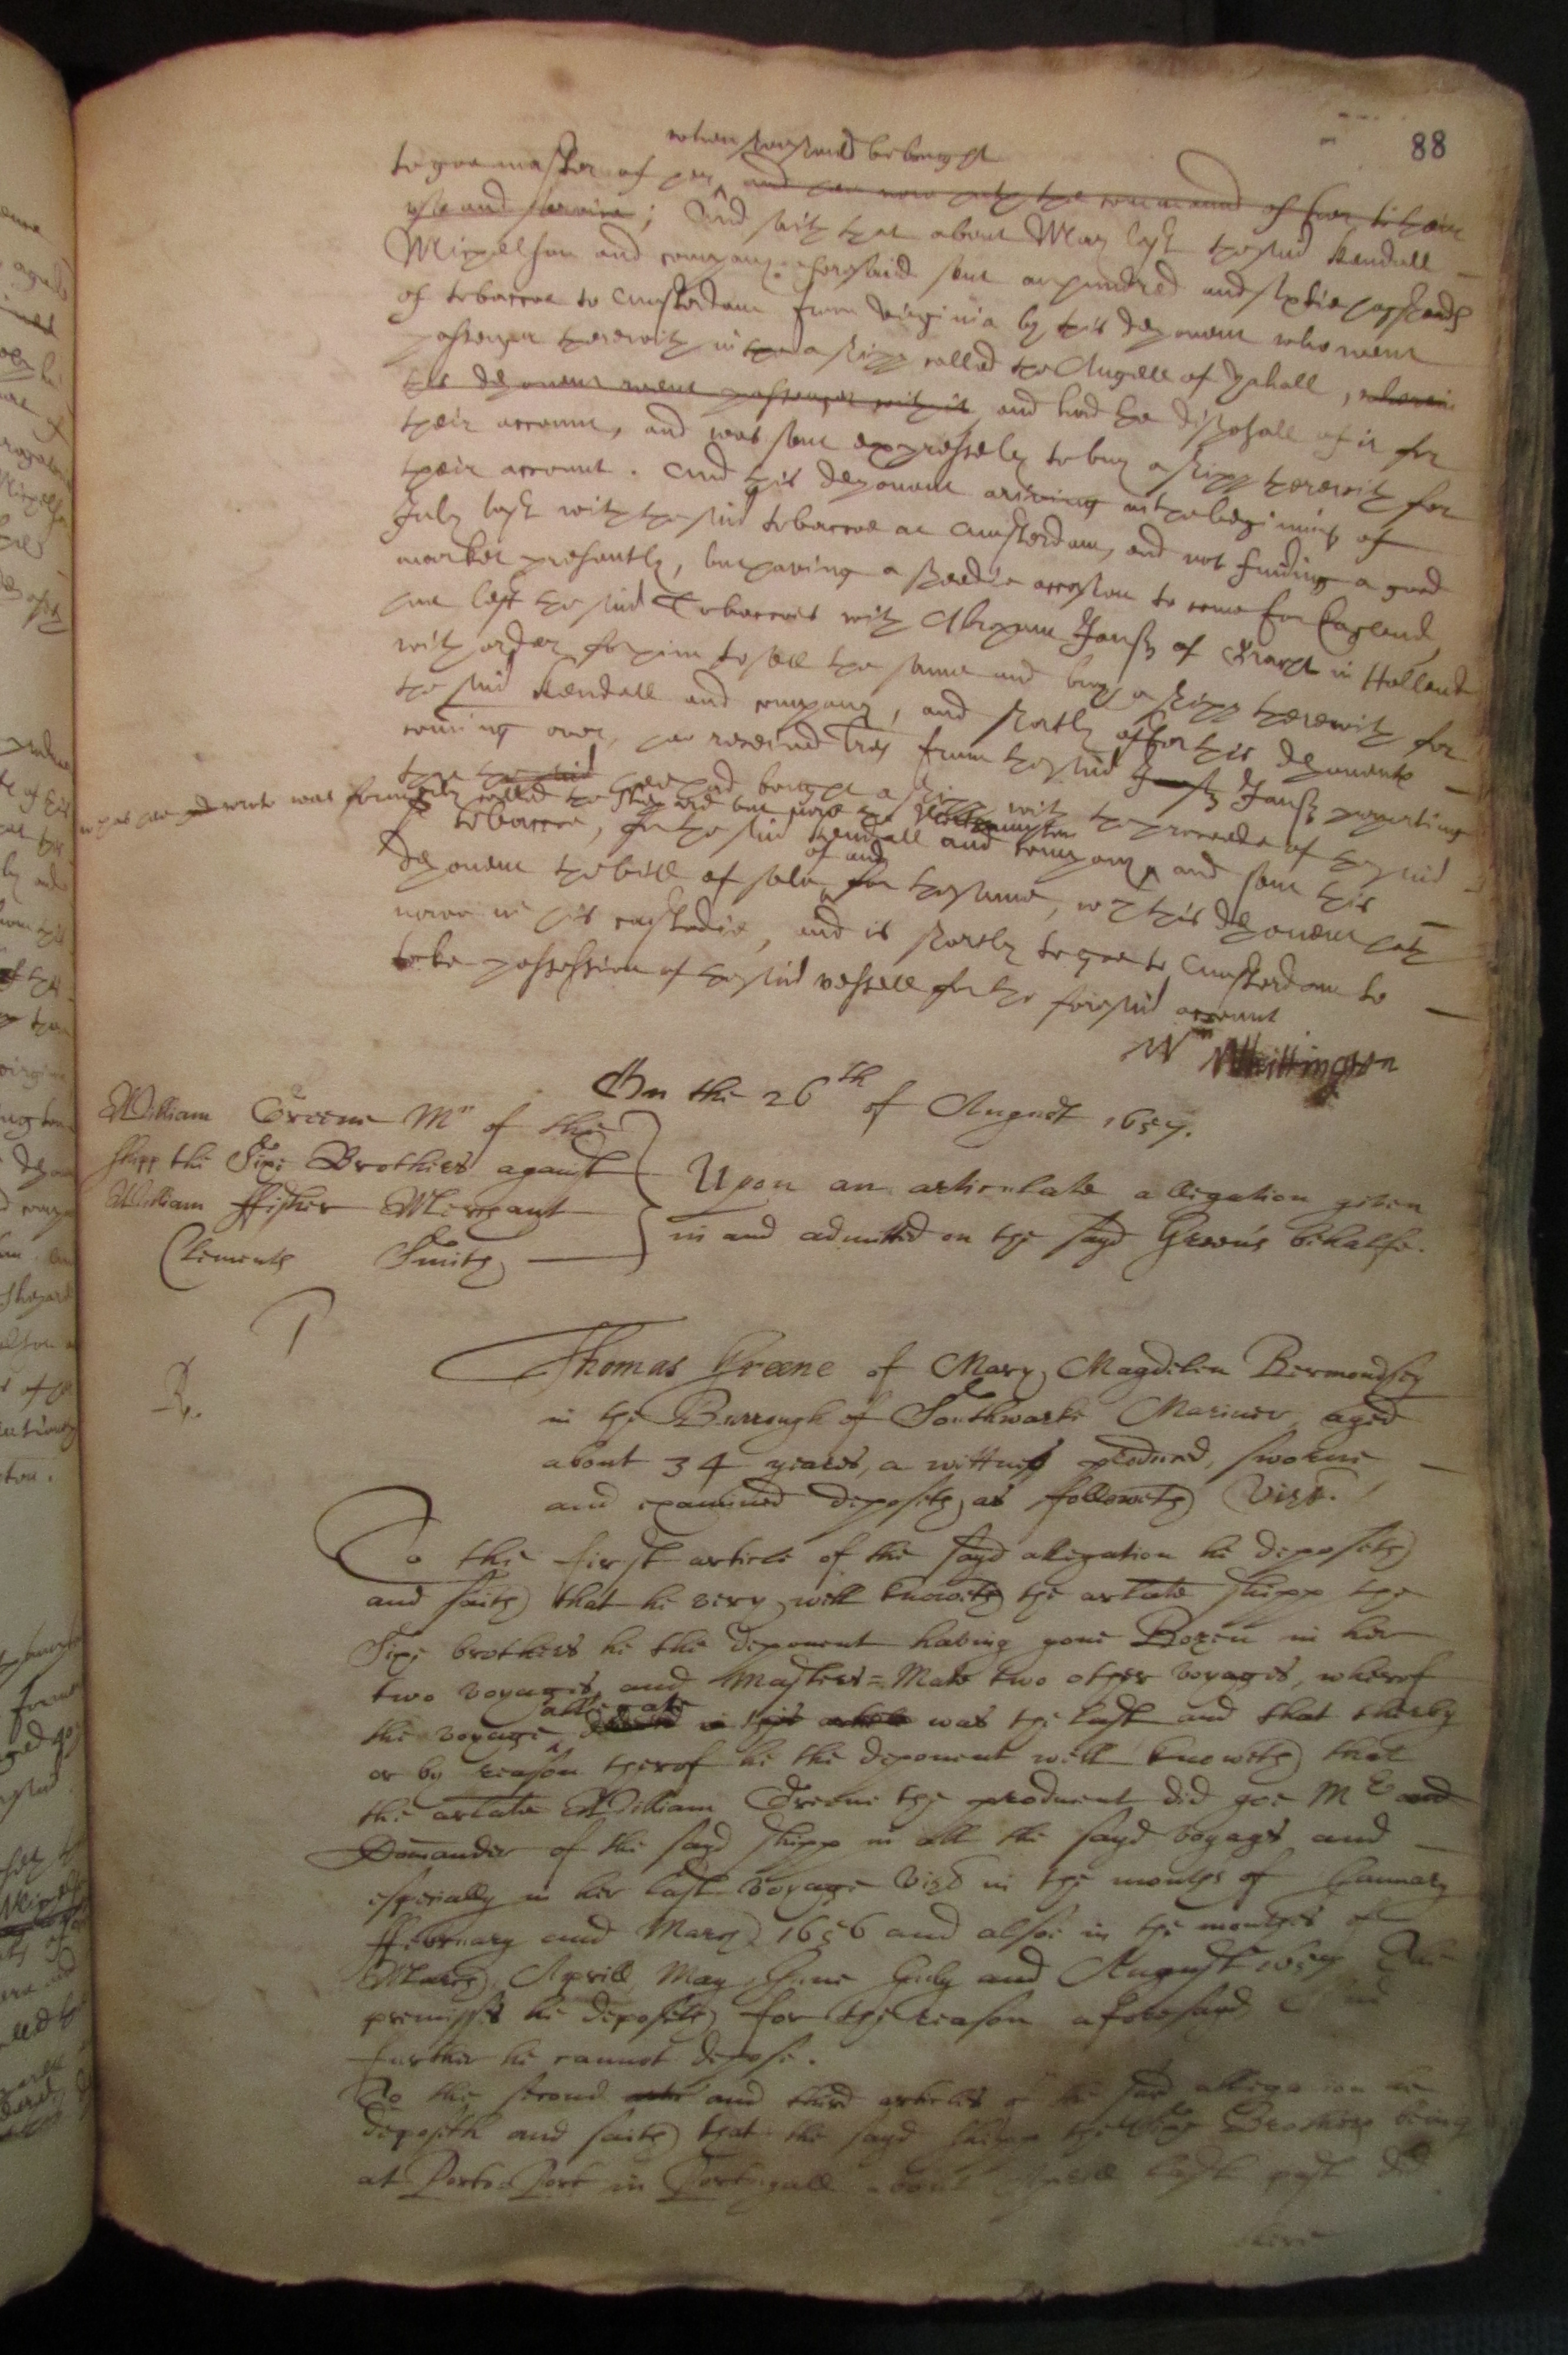 88
when shee should be bought
to goe master of her, and hee now hath the command of her to their
use and service; And saith that about May last the said Kendall
Michelson and company aforesaid sent an hundred and sixtie hogsheads
of tobaccoe to Amsterdam from Virginia by this deponent who went
passenger therewith in the a shipp called the Angell of , wherein
this deponent went passenger with it and had the disposall of it for
their account, and was sent expressely to buy a shipp therewith for
their account. And this deponent ariving at the beginning of
July last with the said tobaccoe at Amsterdam, and not finding a good
market presently, but having a speedie occasion to come for England,
hee left the said Tobaccoes with Abraham Jansz of in Holland
with order for him to sell the same and buy a shipp therewith for
the said Kendall and company, and shortly after this deponents
coming over, hee received tres from the said Jansz Jansz importing
that the said hee had bought a shipp with the proceede of the said
which hee wrote was formerly called the Shepherd but now the
tobaccoe, for the said Kendall and company and sent this
of and
deponent the bill of sale for the same, wch this deponent hath
nowe in his custodie, and is shortly to goe to Amsterdam to
take possession of the said vessell for the foresaid account
Wm Whittington
On the 26th of August 1657.
William Greene Mr of the
shipp the Sixe Brothers against
William ffisher Merchant
Clements Smith
Upon an articulate allegation given
in and admitted on the sayd Green's behalfe.
Thomas Greene of Mary Magdilen Bermondsey
in the Burrough of Southwarke Mariner, aged
about 34 yeares, a wittness produced, sworne
and examined deposeth as followeth Vizt.
To the first article of the sayd allegation he deposeth
and saith that he very well knoweth the arlate shipp the
Sixe brothers he the deponent having gone Bozen in her
two voyages, and Masters=Mate two other voyages, wherof
allegate
the voyage in this article was the last and that therby
or by reason therof he the deponent well knoweth that
the arlate William Greene the producent did goe Mr and
Comander of the sayd shipp in all the sayd voyages and
especially in her last voyage vizt in the months of January
ffebruary and March 1656 and alsoe in the monthes of
March, Aprill, May, June July and August 1657 The
premisses he deposeth for the reason aforesayd And
further he cannot depose.
To the second and third articles of the sayd allegation he
deposeth and saith that the sayd shipp the Sixe Brothers being
at Porto Port in Portugall about Aprill last past did
there